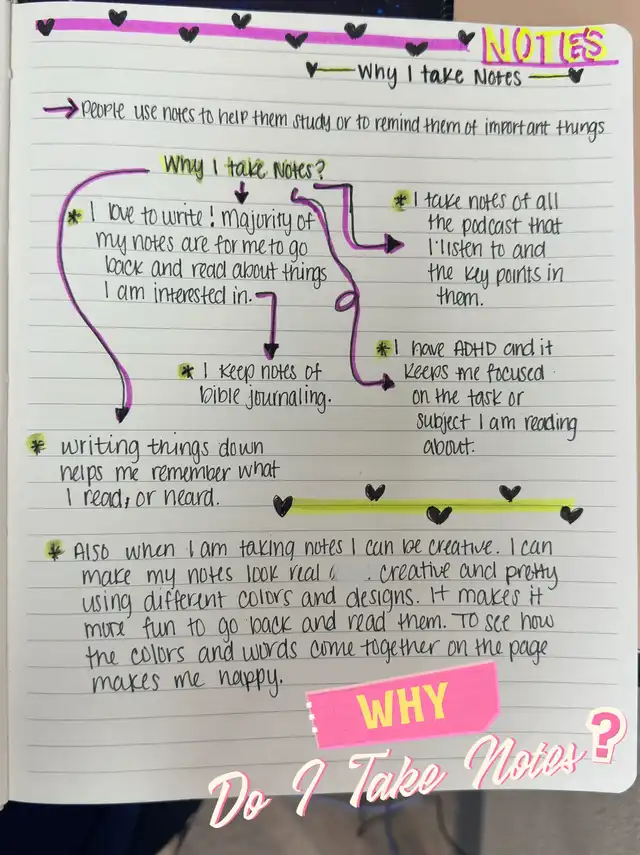 NOTES
Why I take Notes
People use notes to help them study or to remind them of important things
Why I take Notes?
* I love to write! majority of
my notes are for me to go
back and read about things
I am interested in.
* I take notes of all
the podcast that
I listen to and
the key points in
them.
* I keep notes of
bible journaling.
* I have ADHD and it
keeps me focused
on the task or
subject I am reading
about.
* writing things down
helps me remember what
I read, or heard.
* Also when I am taking notes I can be creative. I can
make my notes look real creative and pretty
using different colors and designs. It makes it
more fun to go back and read them. To see how
the colors and words come together on the page
makes me happy.
WHY
Do I Take Notes?